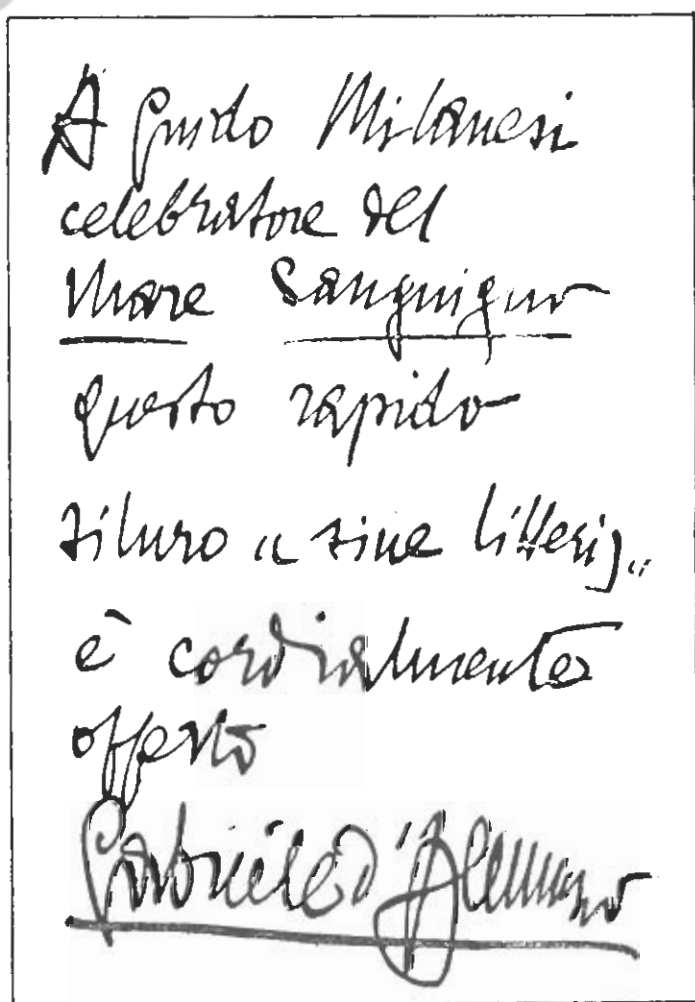 A Guido Milanesi
celebratore del
Mare Sanguigno
questo rapido
siluro „ sine litteris „
è cordialmente
offerto
Gabriele d'Annunzio